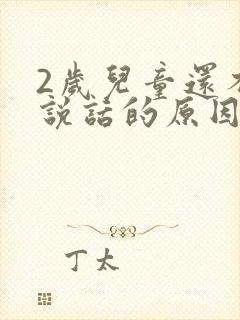 2歲兒童還
說話的原因
丁太